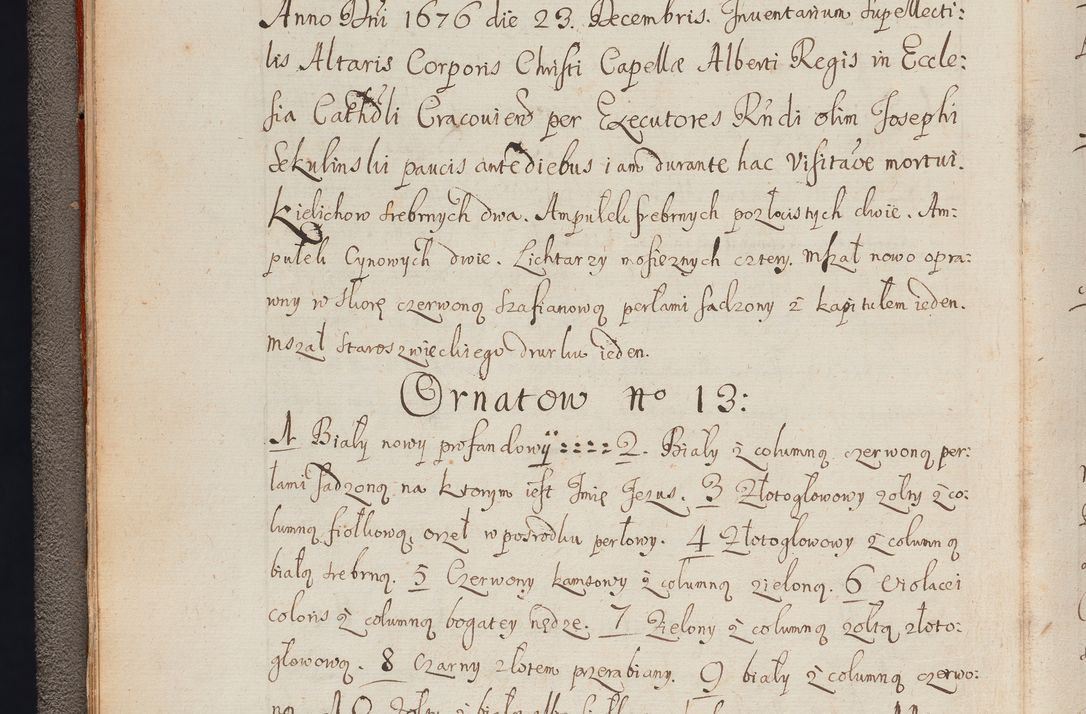 Anno Dni 1676 die 23. Decembris. Inventarium supellecti:
lis Altaris Corporis Christi Capellæ Alberti Regis in Eccle:
sia Cathdli Cracovien per Executores Rndi olim Josephi
Sekulinski paucis ante diebus iam durante hac Visitaõe mortui.
Kielichow srebrnych dwa. Ampułek srebrnych pozłocistych dwie. Am:
pułek Cynowych dwie. Lichtarzy mosieznych cztery. Mszał nowo opra:
wny w skorę czerwoną szafianową perłami sadzony z kapitułem ieden.
Mszał staroswieckiego druku ieden.
Ornatow no 13:
1 Biały nowy profandowÿ :::: 2. Biały z columną czerwoną per:
łami sadzoną na ktorym iest Imię Jezus. 3 Złotogłowowy zołty z co:
lumną fiołkową, orzeł w posrodku perłowy. 4 Złotogłowowy z columną
białą srebrną. 5 Czerwony kamsowy z columną zieloną. 6 Violacei
coloris z columną bogatey nędze. 7 Zielony z columną zołtą złoto:
głowową. 8 Czarny złotem przerabiany. 9 biały z columną czerwo: